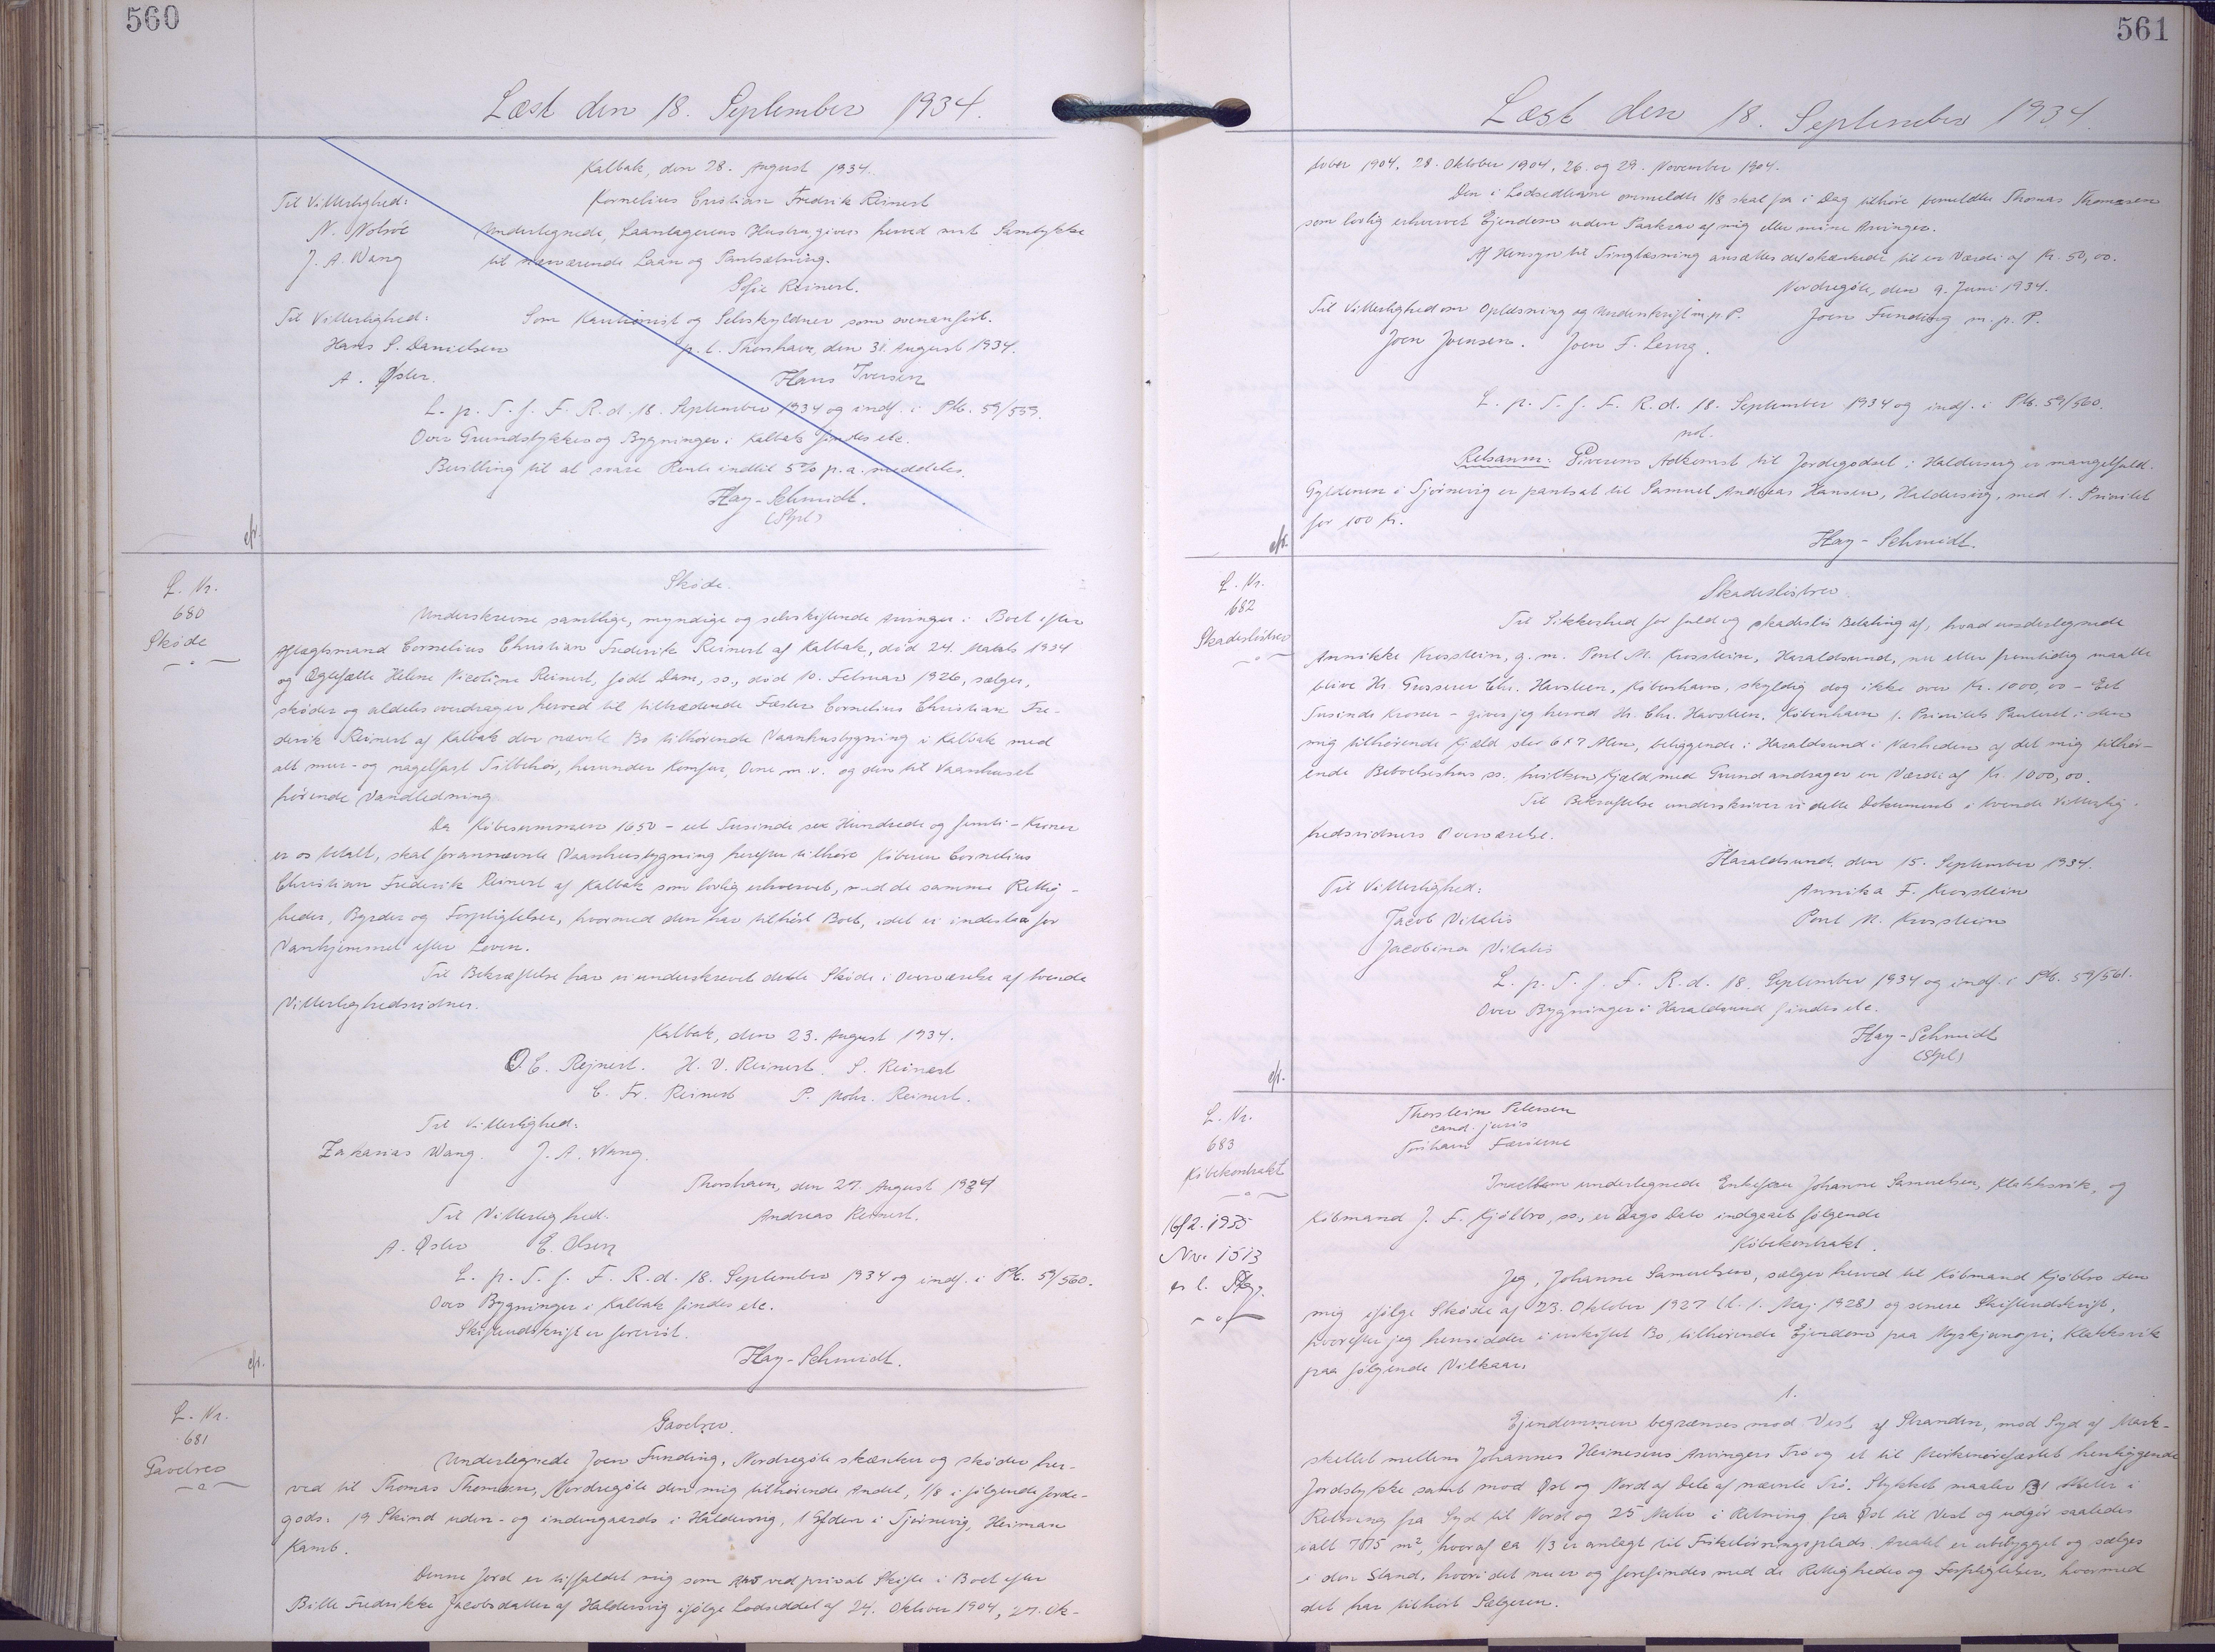 560
Læst den 18. September 1934.
Kalbak, den 28. August 1934.
Til Vitterlighed:
Kornelius Cristian Fredrik Reinert
N. Nolsöe
Undertegnede, Laantagerens Hustru, giver herved mit Samtykke
J. A. Wang
til nærværende Laan og Pantsætning.
Sofie Reinert.
Til Vitterlighed:
Som Kautionist og Selvskyldner som ovenanført.
Hans P. Danielsen
p. t. Thorshavn, den 31. August 1934.
A. Øster.
Hans Iversen
L. p. T. f. F. R. d. 18. September 1934 og indf. i Ptb. 59/559.
Over Grundstykker og Bygninger i Kalbak findes etc.
Bevilling til at svare Rente indtil 5% p. a. meddeles.
Hay-Schmidt.
(Stpl)
cfr.
L. Nr.
680
Skøde
Skøde.
Underskrevne samtlige, myndige og selvskiftende Arvinger i Boet efter
Aftægtsmand Cornelius Christian Frederik Reinert af Kalbak, død 24. Marts 1934
og Ægtefælle Helene Nicoline Reinert, født Dam, ss., død 10. Februar 1926, sælger,
skøder og aldeles overdrager herved til tiltrædende Fæster Cornelius Christian Fre-
derik Reinert af Kalbak den nævnte Bo tilhørende Vaanhusbygning i Kalbak med
alt mur- og nagelfast Tilbehør, herunder Komfur, Ovne m. v. og den til Vaanhuset
hørende Vandledning.
Da Købesummen 1650 - et Tusinde sex Hundrede og femti - Kroner
er os betalt, skal forannævnte Vaanhusbygning herefter tilhøre Køberen Cornelius
Christian Frederik Reinert af Kalbak som lovlig erhvervet, med de samme Rettig-
heder, Byrder og Forpligtelser, hvormed den har tilhørt Boet, idet vi indestaa for
Vanhjemmel efter Loven.
Til Bekræftelse har vi underskrevet dette Skøde i Overværelse af tvende
Vitterlighedsvidner.
Kalbak, den 23. August 1934.
O. C. Rejnert. H. V. Reinert. S. Reinert
C. Fr. Reinert P. Mohr. Reinert.
Til Vitterlighed:
Zakarias Wang. J. A. Wang.
Thorshavn, den 27. August 1934
Til Vitterlighed.
Andreas Reinert.
A. Øster E. Olsen
L. p. T. f. F. R. d. 18. September 1934 og indf. i Ptb. 59/560.
Over Bygninger i Kalbak findes etc.
Skifteudskrift er forevist.
Hay-Schmidt.
cfr.
L. Nr.
681
Gavebrev
Gavebrev.
Undertegnede Joen Funding, Nordregöte skænker og skøder her-
ved til Thomas Thomsen, Nordregöte den mig tilhørende Andel, 1/8 i følgende Jorde-
gods: 19 Skind uden- og indengaards i Haldersvig, 1 Gylden i Tjørnevig, Heiman
Kamb.
Denne Jord er tilfaldet mig som Arv ved privat Skifte i Boet efter
Bille Fredrikke Jacobsdatter af Haldersvig ifølge Lodseddel af 24. Oktober 1904, 27. Ok-
561
Læst den 18. September 1934.
tober 1904, 28. Oktober 1904, 26. og 29. November 1904.
Den i Lodsedlerne ommeldte 1/8 skal fra i Dag tilhøre bemeldte Thomas Thomasen
som lovlig erhvervet Ejendom uden Paakrav af mig eller mine Arvinger.
Af Hensyn til Tinglæsning ansættes det skænkede til en Værdi af Kr. 50,00.
Nordregöte, den 9. Juni 1934.
Til Vitterlighed om Oplæsning og Underskrift m. p. P.
Joen Funding m. p. P.
Joen Joensen. Joen F. Lervig.
L. p. T. f. F. R. d. 18. September 1934 og indf. i Ptb. 59/560.
not.
Retsanm: Giverens Adkomst til Jordegodset i Haldersvig er mangelfuld.
Gyldenen i Tjørnevig er pantsat til Samuel Andreas Hansen, Haldersvig, med 1. Prioritet
for 100 Kr.
Hay-Schmidt.
cfr.
L. Nr.
682
Skadesløsbrev
Skadesløsbrev.
Til Sikkerhed for fuld og skadesløs Betaling af, hvad undertegnede
Annikke Krosstein, g. m. Poul M. Krosstein, Haraldsund, nu eller fremtidig maatte
blive Hr. Grosserer Chr. Havsteen, København, skyldig dog ikke over Kr. 1000,00 - Eet
Tusinde Kroner - giver jeg herved Hr. Chr. Havsteen, København 1. Prioritets Panteret i den
mig tilhørende Kjæld stor 6 x 7 Alen, beliggende i Haraldsund i Nærheden af det mig tilhør-
ende Beboelseshus ss. hvilken Kjæld med Grund andrager en Værdi af Kr. 1000,00.
Til Bekræftelse underskriver vi dette Dokument i tvende Vitterlig-
hedsvidners Overværelse.
Haraldsund, den 15. September 1934.
Til Vitterlighed:
Annika F. Krosstein
Jacob Vitalis
Poul M. Krosstein
Jacobina Vitalis
L. p. T. f. F. R. d. 18. September 1934 og indf. i Ptb. 59/561.
Over Bygninger i Haraldsund findes etc.
Hay-Schmidt
(Stpl)
cfr.
L. Nr.
683
Købekontrakt
16/2. 1935
Nr. 1513
er l. Skøde.
Thorstein Petersen
cand. juris
Tórshavn Færöerne
Imellem undertegnede Enkefru Johanne Samuelsen, Klakksvik, og
Købmand J. F. Kjølbro, ss., er Dags Dato indgaaet følgende
Købekontrakt.
Jeg, Johanne Samuelsen, sælger herved til Købmand Kjølbro den
mig ifølge Skøde af 23. Oktober 1927 (l. 1. Maj 1928) og senere Skifteudskrift,
hvorefter jeg hensidder i uskiftet Bo, tilhørende Ejendom paa Myskjangri, Klakksvik
paa følgende Vilkaar:
1.
Ejendommen begrænses mod Vest af Stranden, mod Syd af Mark-
skellet mellem Johannes Heinesens Arvingers Trø og et til henliggende
Jordstykke samt mod Øst og Nord af Dele af nævnte Trø. Stykket maaler 31 Meter i
Retning fra Syd til Nord og 25 Meter i Retning fra Øst til Vest og udgør saaledes
ialt 775 m², hvoraf ca 1/3 er anlagt til Fisketørringsplads. Arealet er ubebygget og sælges
i den Stand, hvori det nu er og forefindes med de Rettigheder og Forpligtelser, hvormed
det har tilhørt Sælgeren.